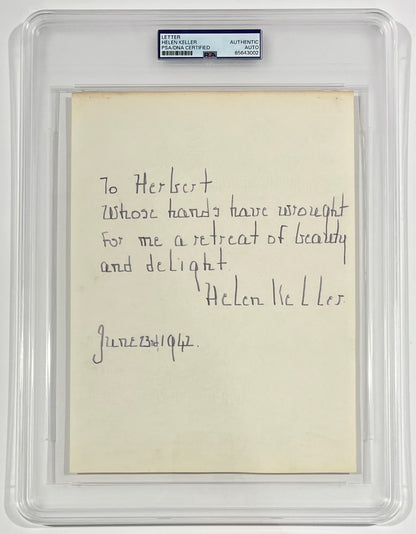 LETTER
HELEN KELLER
PSA/DNA CERTIFIED
AUTHENTIC
AUTO
85643002
To Herbert
Whose hands have wrought
For me a retreat of beauty
and delight.
Helen Keller.
June 23rd, 1942.